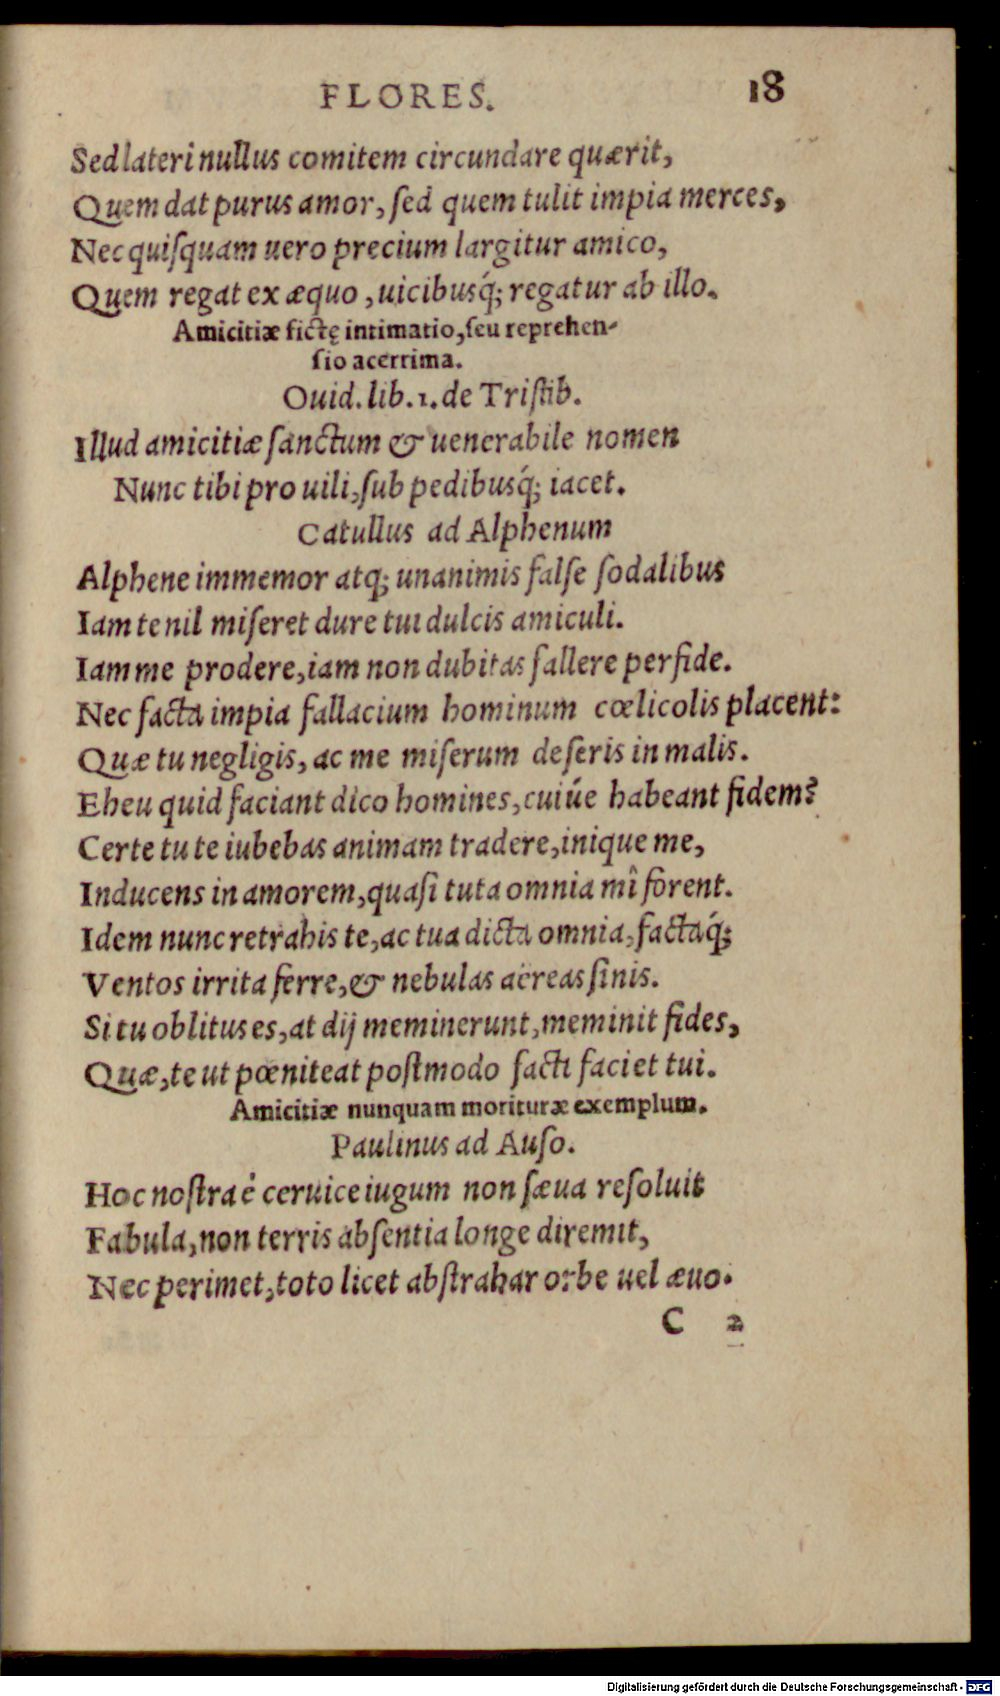 FLORES. 18
Sed lateri nullus comitem circundare quærit,
Quem dat purus amor, ſed quem tulit impia merces,
Nec quiſquam uero precium largitur amico,
Quem regat ex æquo, uicibusq́; regatur ab illo.
Amicitiæ fictę intimatio, ſeu reprehen-
ſio acerrima.
Ouid. lib. 1. de Triſtib.
Illud amicitiæ ſanctum & uenerabile nomen
Nunc tibi pro uili, ſub pedibusq́; iacet.
Catullus ad Alphenum
Alphene immemor atq; unanimis falſe ſodalibus
Iam te nil miſeret dure tui dulcis amiculi.
Iam me prodere, iam non dubitas fallere perfide.
Nec facta impia fallacium hominum cœlicolis placent:
Quæ tu negligis, ac me miſerum deſeris in malis.
Eheu quid faciant dico homines, cuiúe habeant fidem?
Certe tu te iubebas animam tradere, inique me,
Inducens in amorem, quaſi tuta omnia mî forent.
Idem nunc retrahis te, ac tua dicta omnia, factaq́;
Ventos irrita ferre, & nebulas aëreas ſinis.
Si tu oblitus es, at dij meminerunt, meminit fides,
Quæ, te ut pœniteat poſtmodo facti faciet tui.
Amicitiæ nunquam morituræ exemplum.
Paulinus ad Auſo.
Hoc noſtra é ceruice iugum non ſæua reſoluit
Fabula, non terris abſentia longe diremit,
Nec perimet, toto licet abſtrahar orbe uel æuo.
C 2
Digitalisierung gefördert durch die Deutsche Forschungsgemeinschaft - DFG